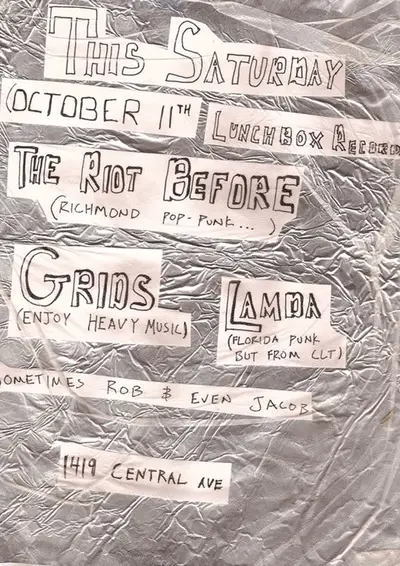 THIS SATURDAY
(OCTOBER 11TH
LUNCHBOX RECORD
THE RIOT BEFORE
(RICHMOND POP-PUNK... )
GRIDS
(ENJOY HEAVY MUSIC)
LAMDA
(FLORIDA PUNK
BUT FROM CLT)
OMETIMES ROB & EVEN JACOB
1419 CENTRAL AVE